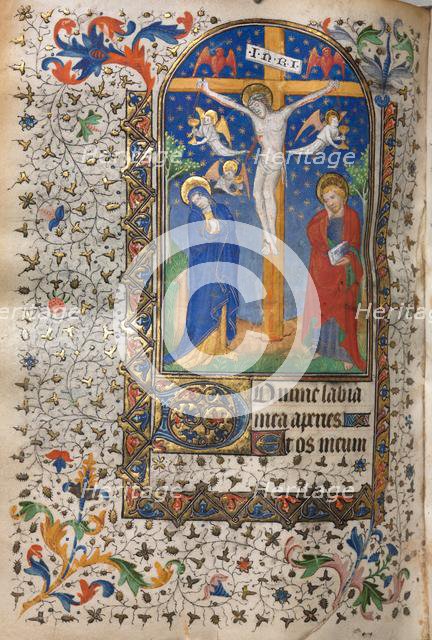 ·I·N·R·I·
Domine labia
mea aperies
Et os meum
Heritage
Heritage
Heritage
Heritage
Heritage
Heritage
Heritage
Heritage
C